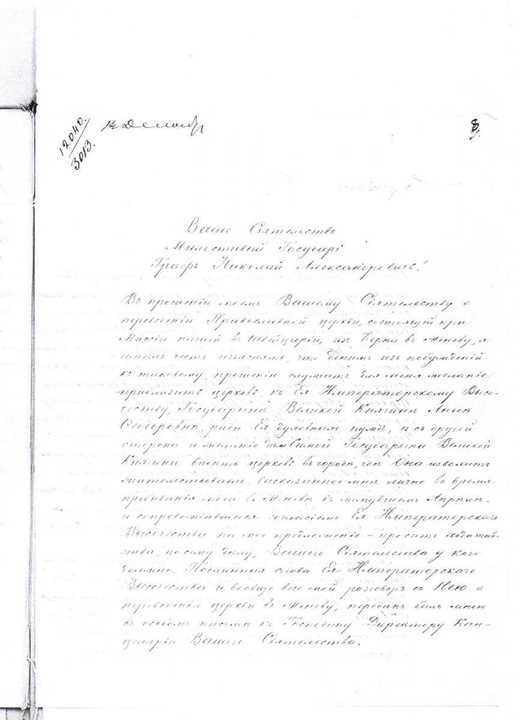 12040.
3013.
14 Декабр
8.
Ваше Сіятельство
Милостивый Государь
Графъ Николай Александровичъ!
Въ прошеніи моемъ Вашему Сіятельству о
перенесеніи Православной церкви, состоящей при
Миссіи нашей въ Швейцаріи, изъ Берна въ Женеву, я
имѣлъ честь изъяснить, что однимъ изъ побужденій
къ таковому прошенію служитъ для меня желаніе
приблизить церковь къ Ея Императорскому Высо-
честву, Государынѣ Великой Княгинѣ Аннѣ
Ѳеодоровнѣ, ради Ея духовныхъ нуждъ, а съ другой
стороны и желаніе Самой Государыни Великой
Княгини имѣть церковь въ городѣ, гдѣ Она изволитъ
жительствовать, высказанное мнѣ лично во время
пребыванія моего въ Женевѣ въ минувшемъ Апрѣлѣ,
и сопровождавшееся согласіемъ Ея Императорскаго
Высочества на мое предложеніе – просить ходатай-
ства, по сему дѣлу, Вашего Сіятельства у кого
должно. Подлинныя слова Ея Императорскаго
Высочества и вообще весь мой разговоръ съ Нею о
перенесеніи церкви въ Женеву, переданъ былъ мною
въ особомъ письмѣ къ Господину Директору Кан-
целяріи Вашего Сіятельства.